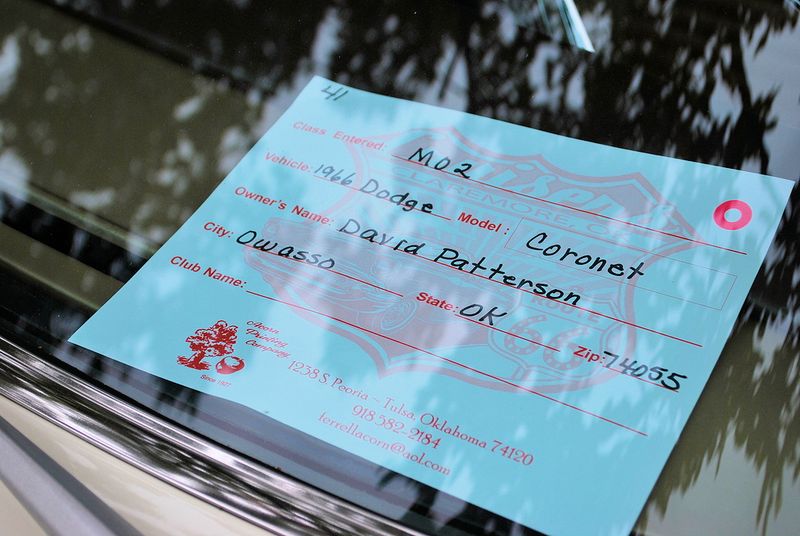 41
Class Entered: MO2
Vehicle: 1966 Dodge Model: Coronet
Owner's Name: David Patterson
City: Owasso State: OK Zip: 74055
Club Name:
CLAREMORE, O
66
Acorn
Printing
Company
Since 1927
1238 S Peoria ~ Tulsa, Oklahoma 74120
918-582-2184
terrellacorn@aol.com